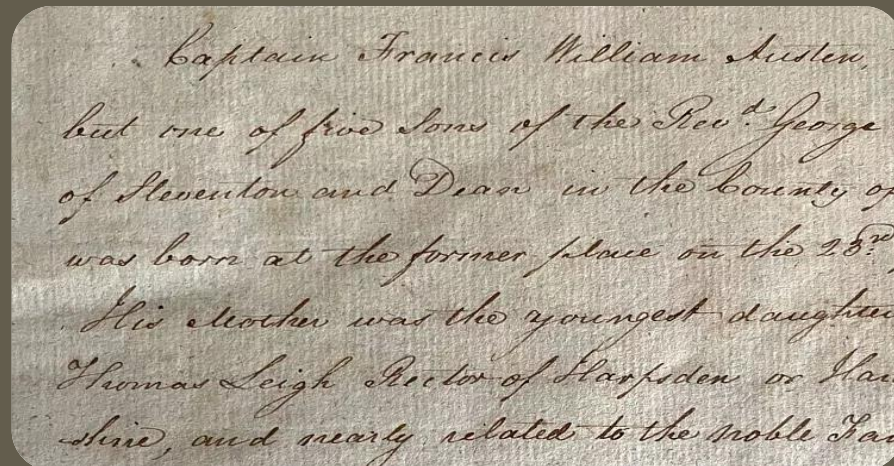 Captain Francis William Austen,
but one of five Sons of the Revd. George
of Steventon and Dean in the County of
was born at the former place on the 23rd
His Mother was the youngest daughter
Thomas Leigh Rector of Harpsden or Har
shire, and nearly related to the noble Fam